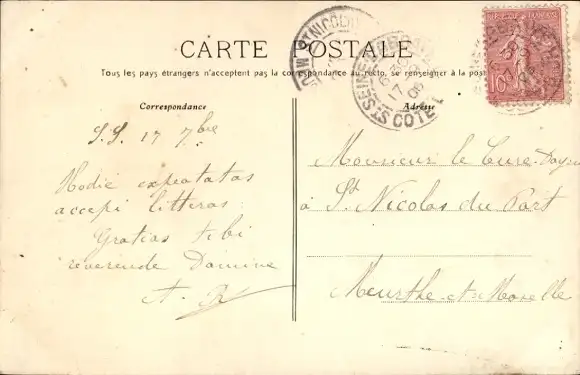 CARTE POSTALE
Tous les pays étrangers n'acceptent pas la correspondance au recto, se renseigner à la poste
Correspondance
Adresse
S.S. 17 7bre
Hodie expectatas
accepi litteras.
Gratias tibi
reverende Domine
A. R
Monsieur le Curé-Doyen
à St. Nicolas du Port
Meurthe-et-Moselle
ST NICOLAS
SEINE
CÔTE
17
06
10